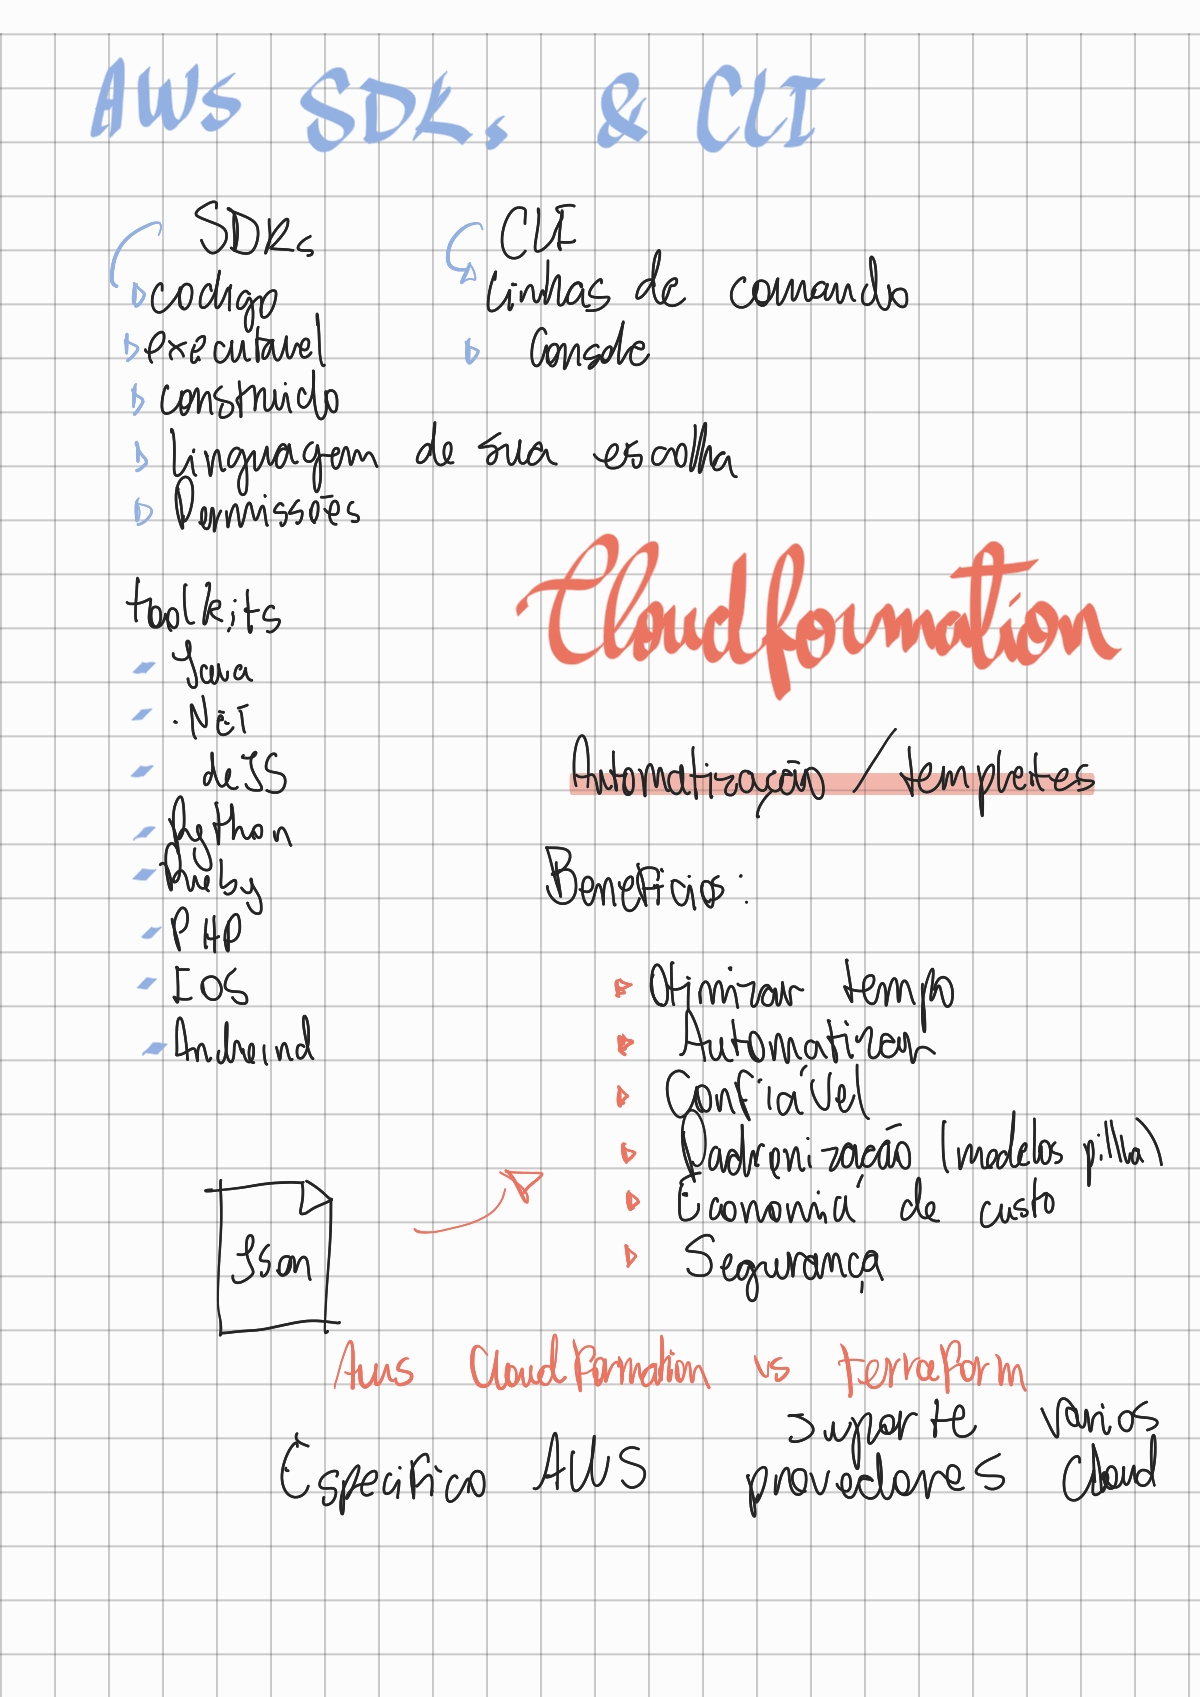 AWS SDKs & CLI
SDKs
codigo
executavel
construido
Linguagem de sua escolha
Permissões
CLI
Linhas de comando
Console
toolkits
Java
.Net
deJS
Python
Ruby
PHP
IOS
Cloudformation
Automatização / templetes
Beneficios:
Otimizar tempo
Automatizar
Confiável
Padrenização (modelos pilha)
Economia de custo
Segurança
Json
Aws Cloud Formation vs terraform
Especifico AWS
suporte varios
provedores Cloud